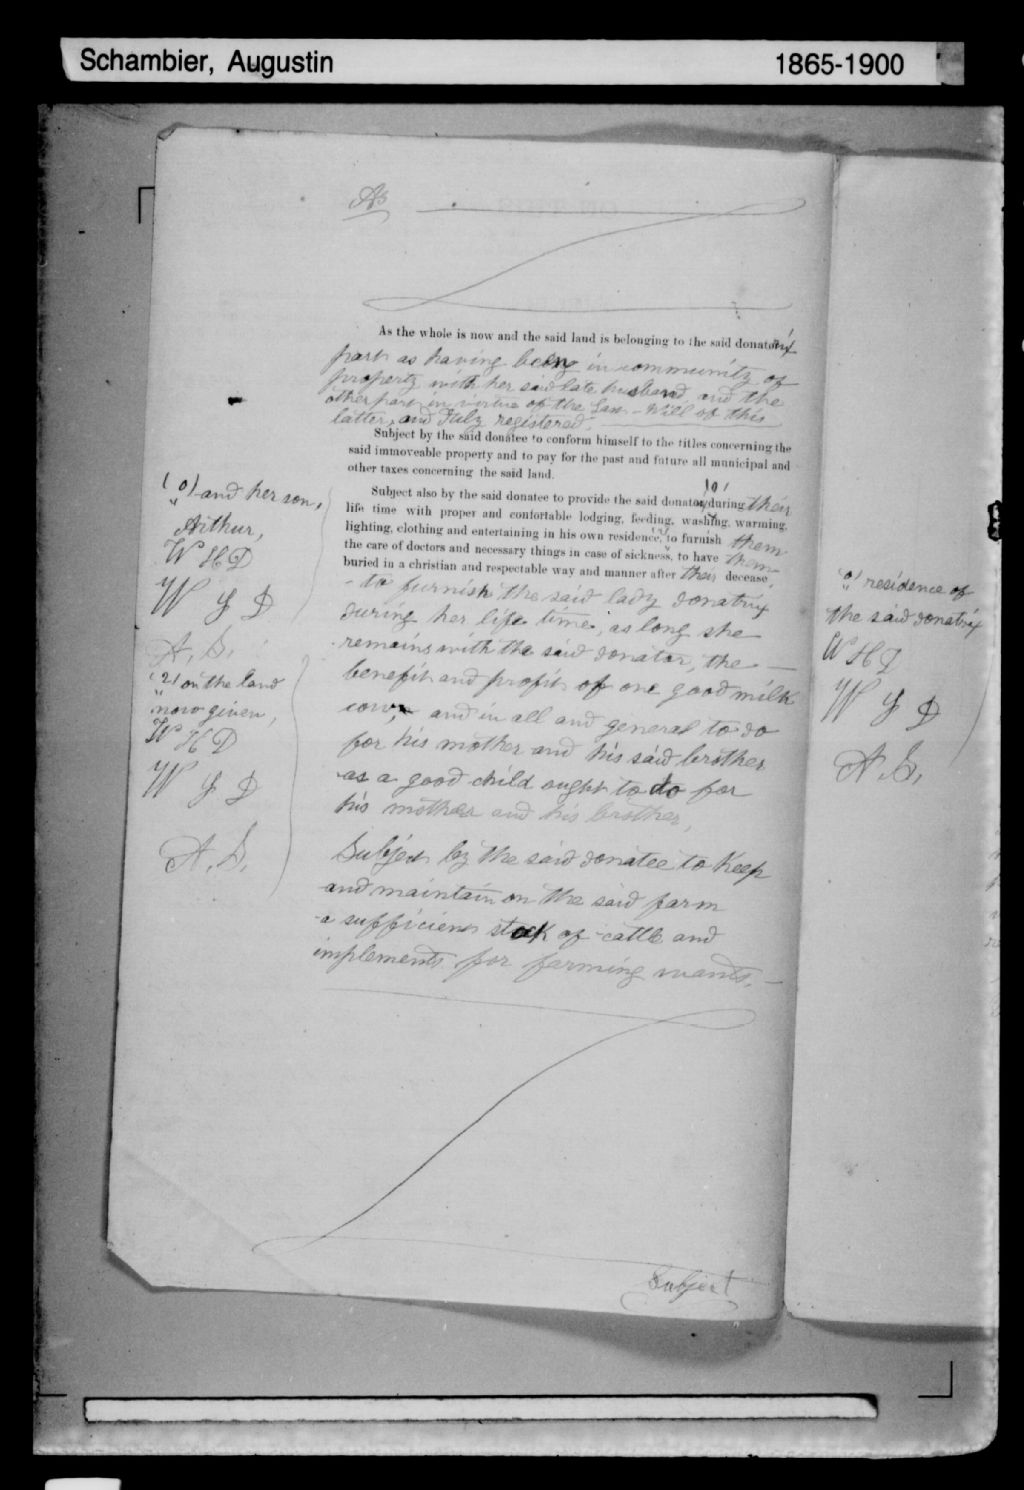 Schambier, Augustin 1865-1900
As
As the whole is now and the said land is belonging to the said donatorix
part as having being in community of
property with her said late husband, and the
other part in virtue of the Last - Will of this
latter, and duly registered.
Subject by the said donatee to conform himself to the titles concerning the
said immoveable property and to pay for the past and future all municipal and
other taxes concerning the said land.
Subject also by the said donatee to provide the said donator (o) during their
life time with proper and confortable lodging, feeding, washing, warming,
lighting, clothing and entertaining in his own residence, to furnish them
the care of doctors and necessary things in case of sickness, to have them
buried in a christian and respectable way and manner after their decease,
- to furnish the said lady donatrix
during her life time, as long she
remains with the said donator, the
benefit and profit of one good milk
cow, and in all and general to do
for his mother and his said brother
as a good child ought to do for
his mother and his brother,
Subject by the said donatee to Keep
and maintain on the said farm
a sufficient stock of cattle and
implements for farming wants.
Subject
(o) and her son,
Arthur,
W H D
W J D
A. S.
(2) on the land
now given,
W H D
W J D
A. S.
"o" residence of
the said donatrix
W H D
W J D
A. S.